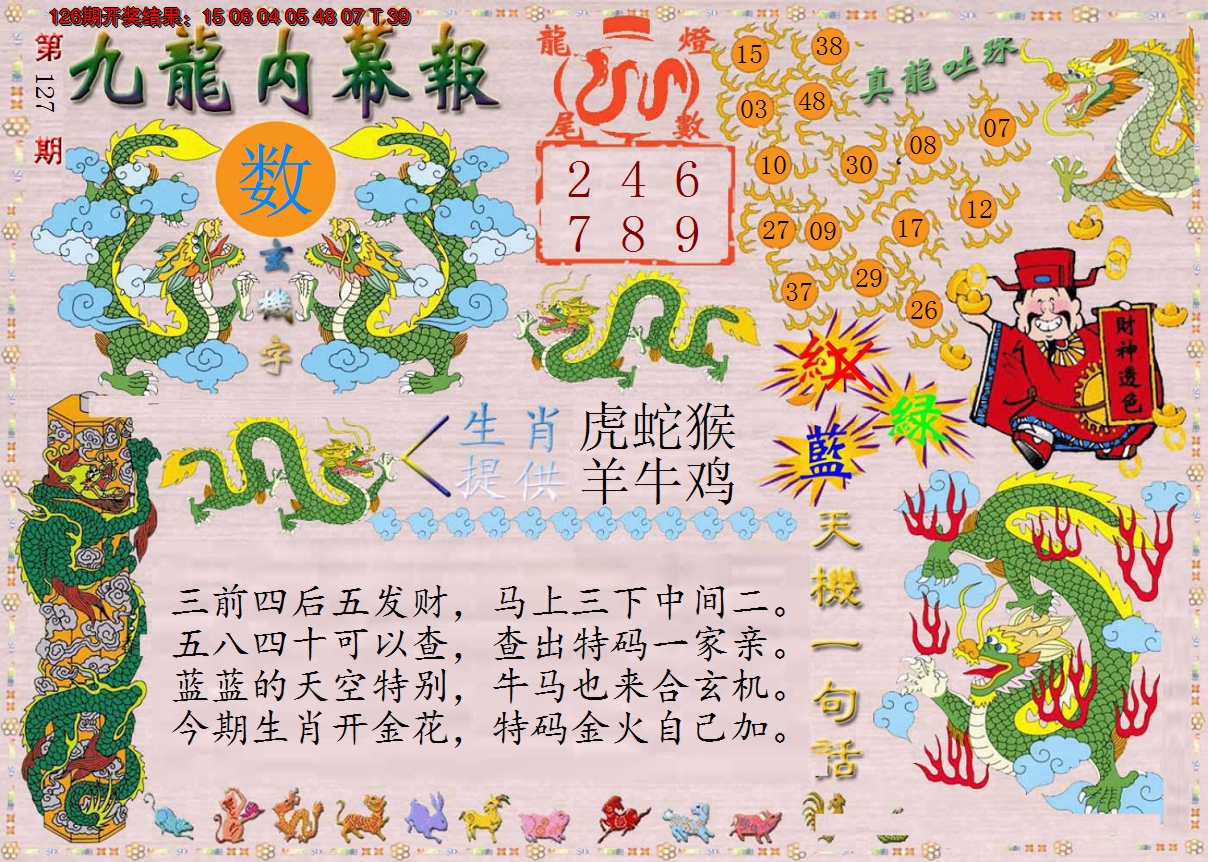 126期开奖结果：15 06 04 05 48 07 T 39
第127期
九龍内幕報
数
玄機字
龍燈
尾數
2 4 6
7 8 9
真龍吐珠
15 38
03 48
10 30 08 07
27 09 17 12
37 29 26
紅
綠
藍
財神透色
生肖 虎蛇猴
提供 羊牛鸡
天機一句话
三前四后五发财，马上三下中间二。
五八四十可以查，查出特码一家亲。
蓝蓝的天空特别，牛马也来合玄机。
今期生肖开金花，特码金火自己加。